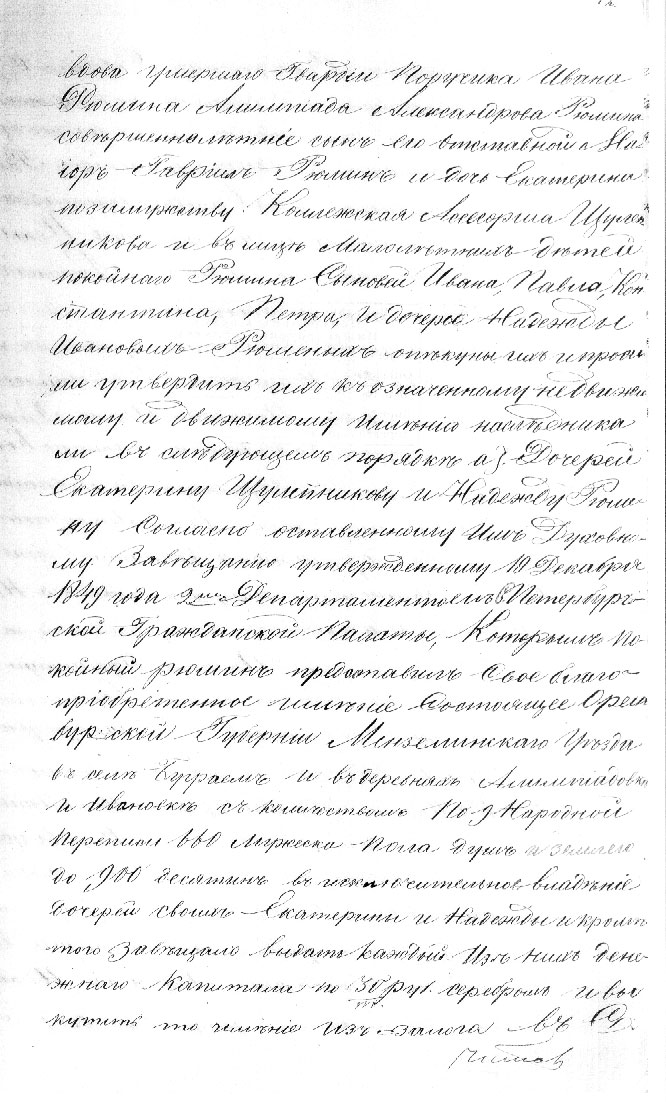 вдова Гвардіи Поручика Ивана
Рюмина Алимпіада Александрова Рюмина
совершеннолѣтніе сынъ его отставной Ма
іоръ Гавріилъ Рюминъ и дочь Екатерина
по замужеству Коллежская Асесорша Щулеп
никова и въ лицѣ малолѣтнихъ дѣтей
покойнаго Рюмина Сыновей Ивана, Павла, Кон
стантина, Петра, и дочери Надежды
Ивановыхъ Рюминыхъ опѣкуны ихъ и проси
ли утвердить ихъ къ означенному недвижи
мому и движимому имѣнію наслѣдника
ми въ слѣдующемъ порядкѣ а). Дочерей
Екатерину Щулепникову и Надежду Рюми
ну Согласно оставленному Имъ Духовно
му Завѣщанію утвержденному 19 Декабря
1849 года 2мъ Департаментомъ С Петербург
ской Гражданской Палаты, Которымъ по
койный Рюминъ предоставилъ Свое благо
пріобрѣтенное имѣніе Состоящее Орен
бургской Губерніи Мензелинскаго Уѣзда
въ селѣ и въ деревняхъ Алимпіадовкѣ
и Ивановкѣ съ количествомъ По 9 Народной
переписи 660 Мужеска Пола душъ и землею
до 900 десятинъ въ исключительное владѣніе
дочерей своихъ Екатерины и Надежды и кромѣ
того Завѣщалъ выдать каждой Изъ нихъ дене
жнаго Капитала по 30 руб серебромъ и вы
купить то имѣніе изъ залога въ С.